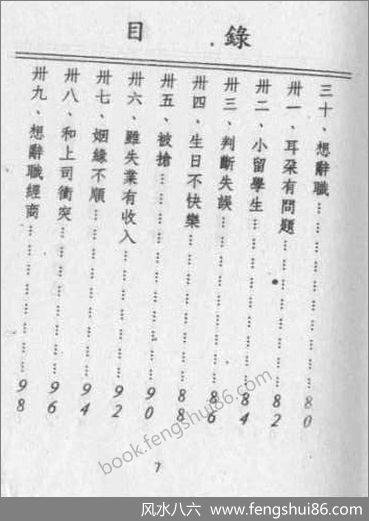 目錄
三十、想辭職………………80
卅一、耳朵有問題………………82
卅二、小留學生………………84
卅三、判斷失誤………………86
卅四、生日不快樂………………88
卅五、被搶………………90
卅六、雖失業有收入………………92
卅七、姻緣不順………………94
卅八、和上司衝突………………96
卅九、想辭職經商………………98
7
book.fengshui86.com
风水八六：www.fengshui86.com